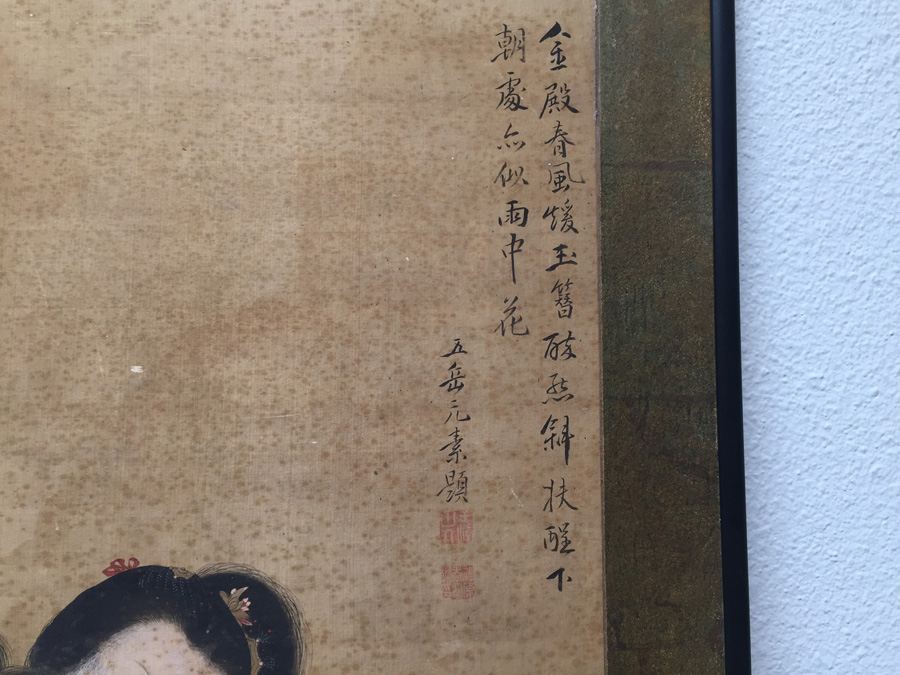 金殿春風煖玉簪酔然斜扶醒下
朝處亦似雨中花
五岳元素題